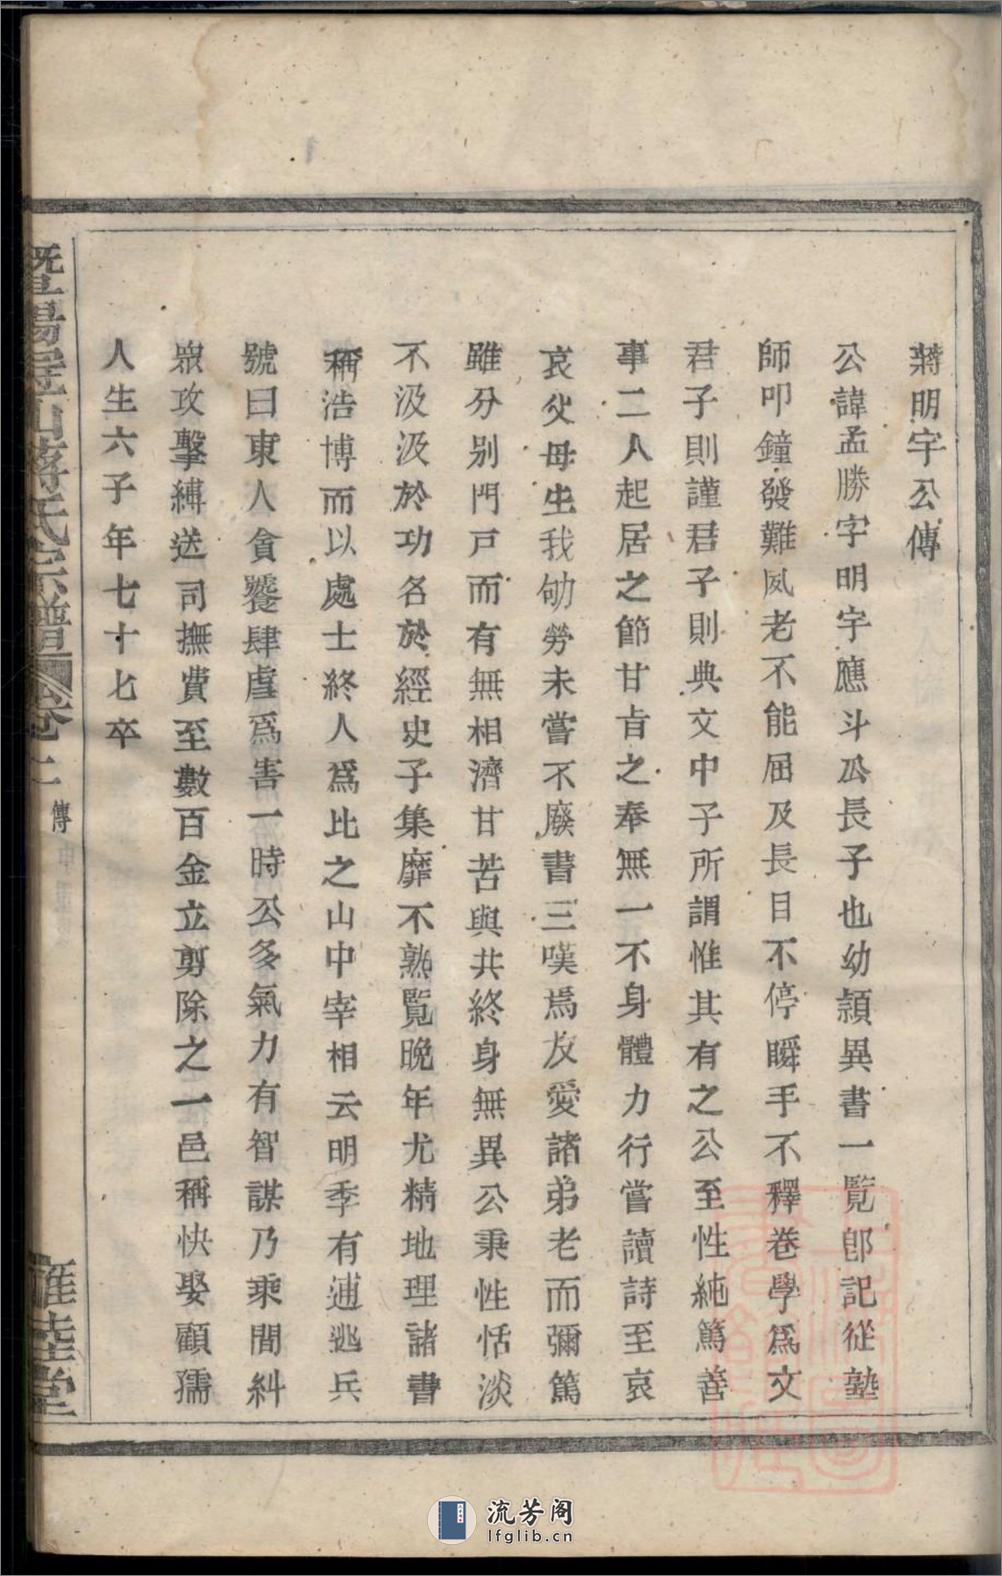 蔣明宇公傳
公諱孟勝字明宇應斗公長子也幼頴異書一覧卽記從塾
師叩鐘發難夙老不能屈及長目不停瞬手不釋卷學爲文
君子則謹君子則典文中子所謂惟其有之公至性純篤善
事二人起居之節甘旨之奉無一不身體力行嘗讀詩至哀
哀父母生我劬勞未嘗不廢書三嘆焉友愛諸弟老而彌篤
雖分别門戸而有無相濟甘苦與共終身無異公秉性恬淡
不汲汲於功名於經史子集靡不熟覧晚年尤精地理諸書
稱浩博而以處士終人爲比之山中宰相云明季有逋逃兵
號曰東人貪饕肆虐爲害一時公多氣力有智謀乃乘間糾
眾攻擊縛送司撫費至數百金立剪除之一邑稱快娶顧孺
人生六子年七十七卒
暨陽 山蔣氏宗譜 卷 傳
堂
流芳阁
lfglib.cn